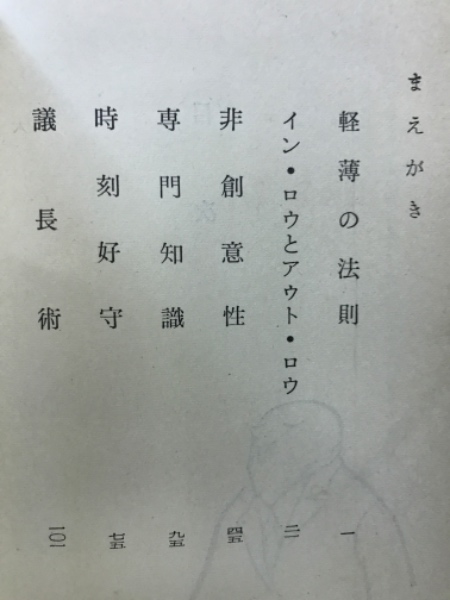 まえがき
軽薄の法則 一
イン・ロウとアウト・ロウ 二一
非創意性 四五
専門知識
時刻好守 七五
議長術 一〇一